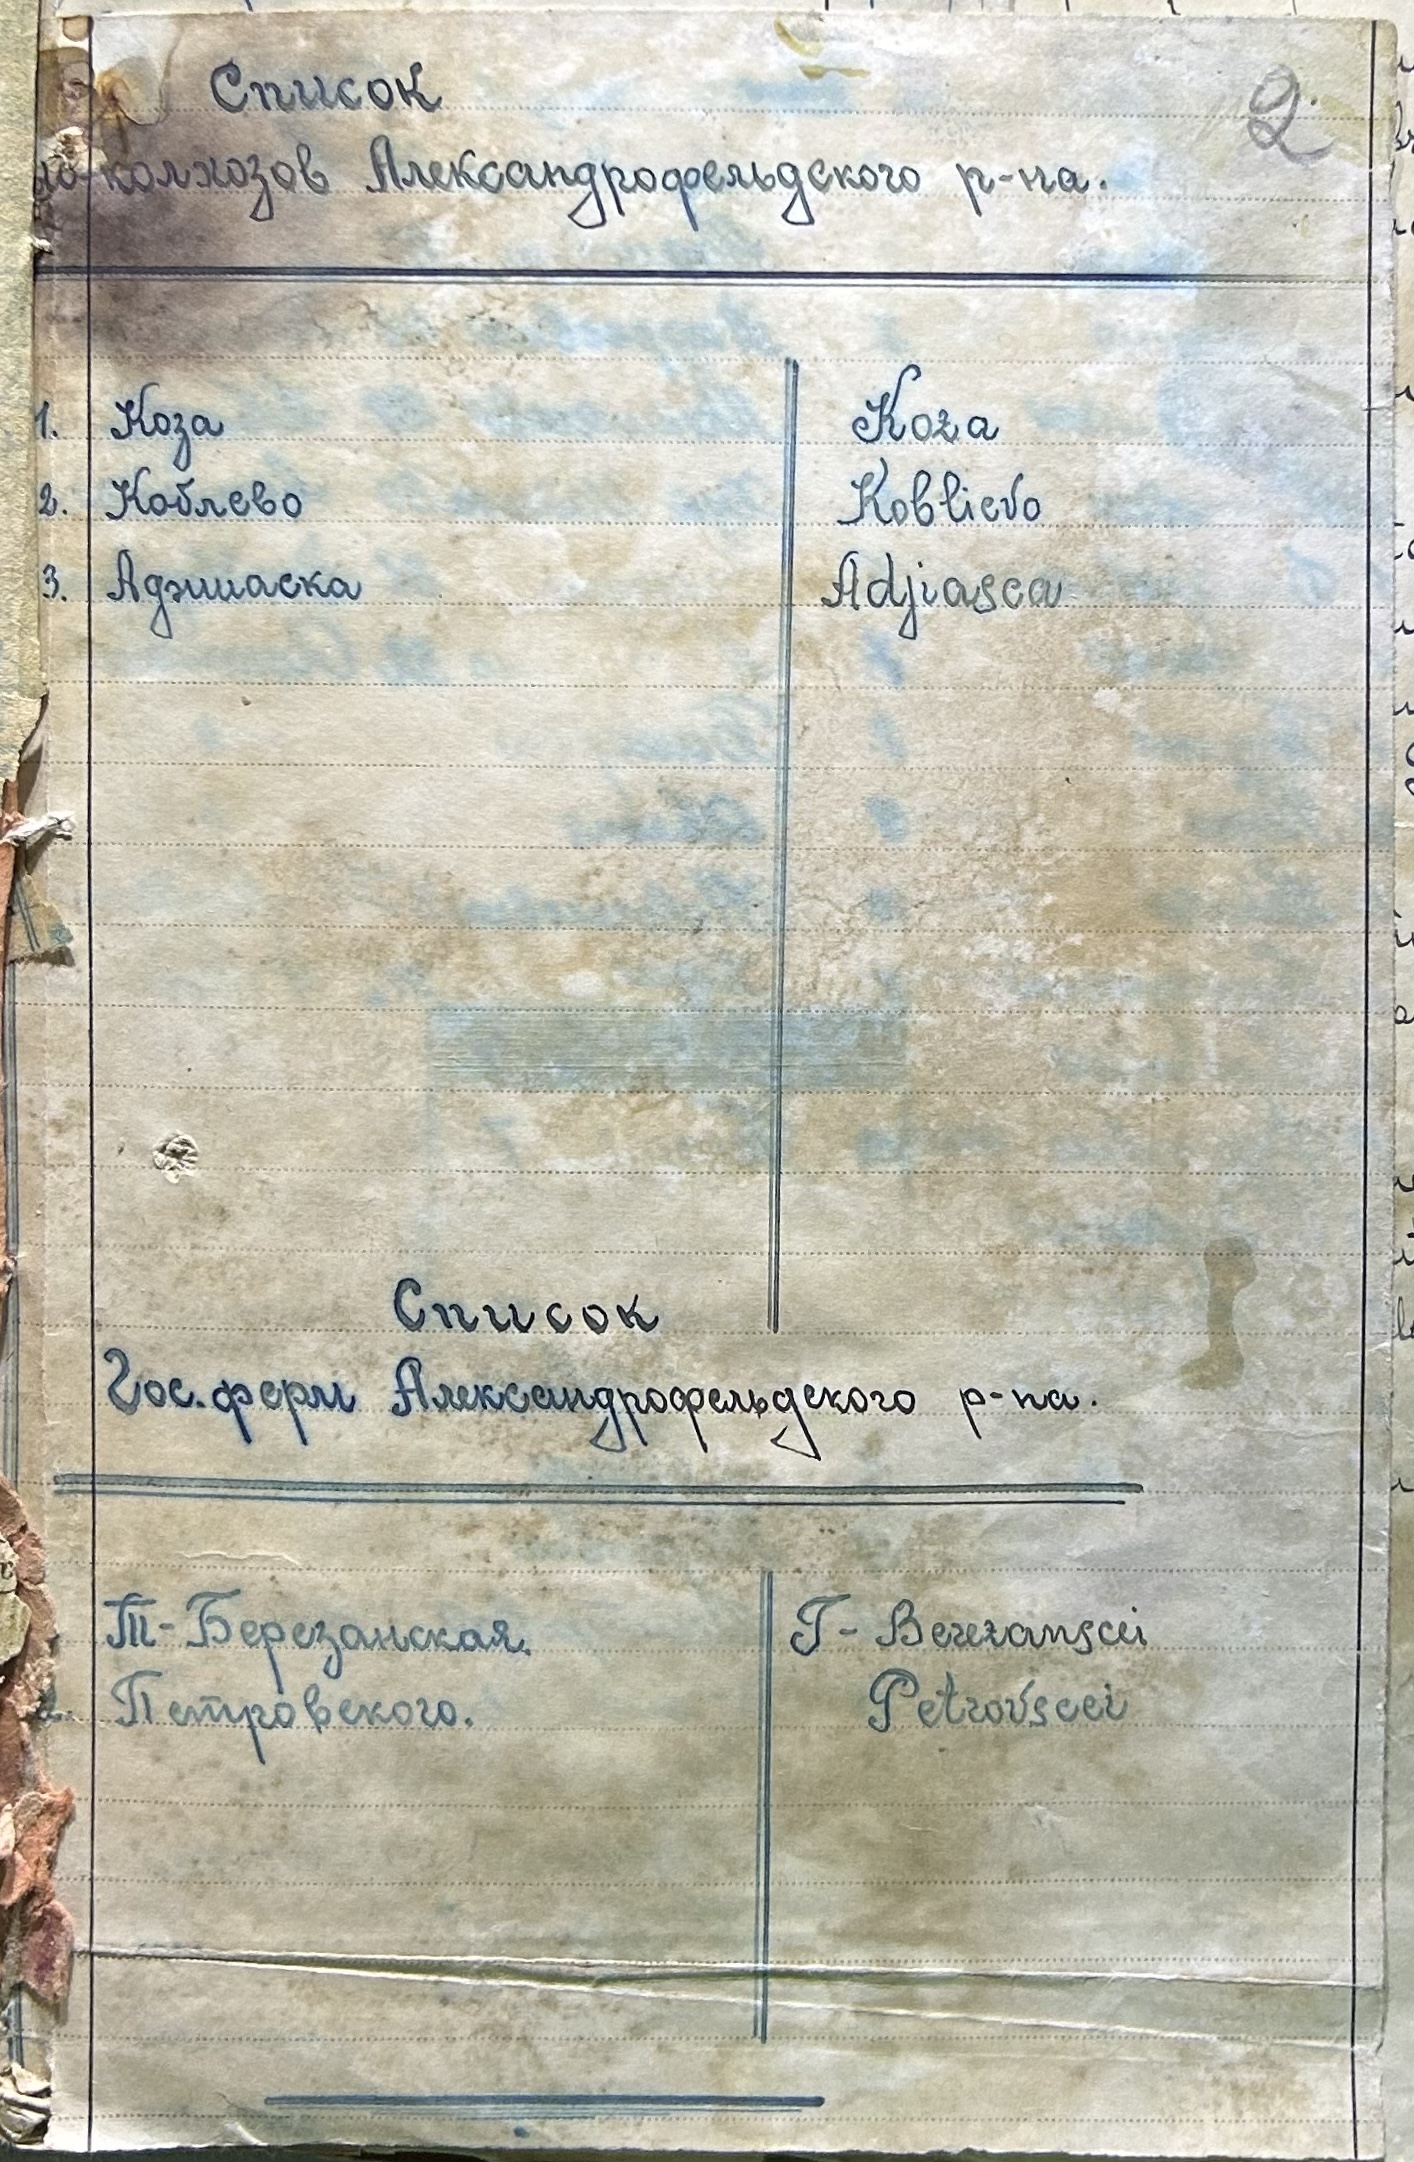 Список
2.
колхозов Александрофельдского р-на.
1. Коза Koza
2. Коблево Koblievo
3. Аджиаска Adjiasca
Список
Гос. ферм Александрофельдского р-на.
Т-Березанская. T- Berezanscei
2. Петровского. Petrovscei